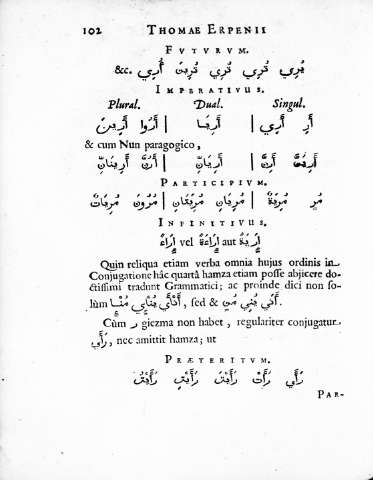 102 THOMAE ERPENII
FUTURUM.
&c. أُرِي تُرِينَ تُرِي تُرِي يُرِي
IMPERATIVUS.
Plural. Dual. Singul.
أَرِ أَرِي | أَرِيَا | أَرُوا أَرِينَ
& cum Nun paragogico,
أَرِيَنَّ أَرِنَّ | أَرِيَانِّ | أَرُنَّ أَرِينَانِّ
PARTICIPIUM.
مُرٍ مُرِيَةٌ | مُرِيَانِ مُرِيَتَانِ | مُرُونَ مُرِيَاتٌ
INFINITIVUS.
إِرَاءٌ vel إِرَاءَةٌ aut إِرَايَةٌ
Quin reliqua etiam verba omnia hujus ordinis in
Conjugatione hâc quartâ hamza etiam posse abjicere do-
ctissimi tradunt Grammatici; ac proinde dici non so-
lùm , sed &
Cùm ر giezma non habet, regulariter conjugatur
رَأَي, nec amittit hamza; ut
PRÆTERITUM.
رَأَي رَأَتْ رَأَيْتَ رَأَيْتِ رَأَيْتُ
PAR-